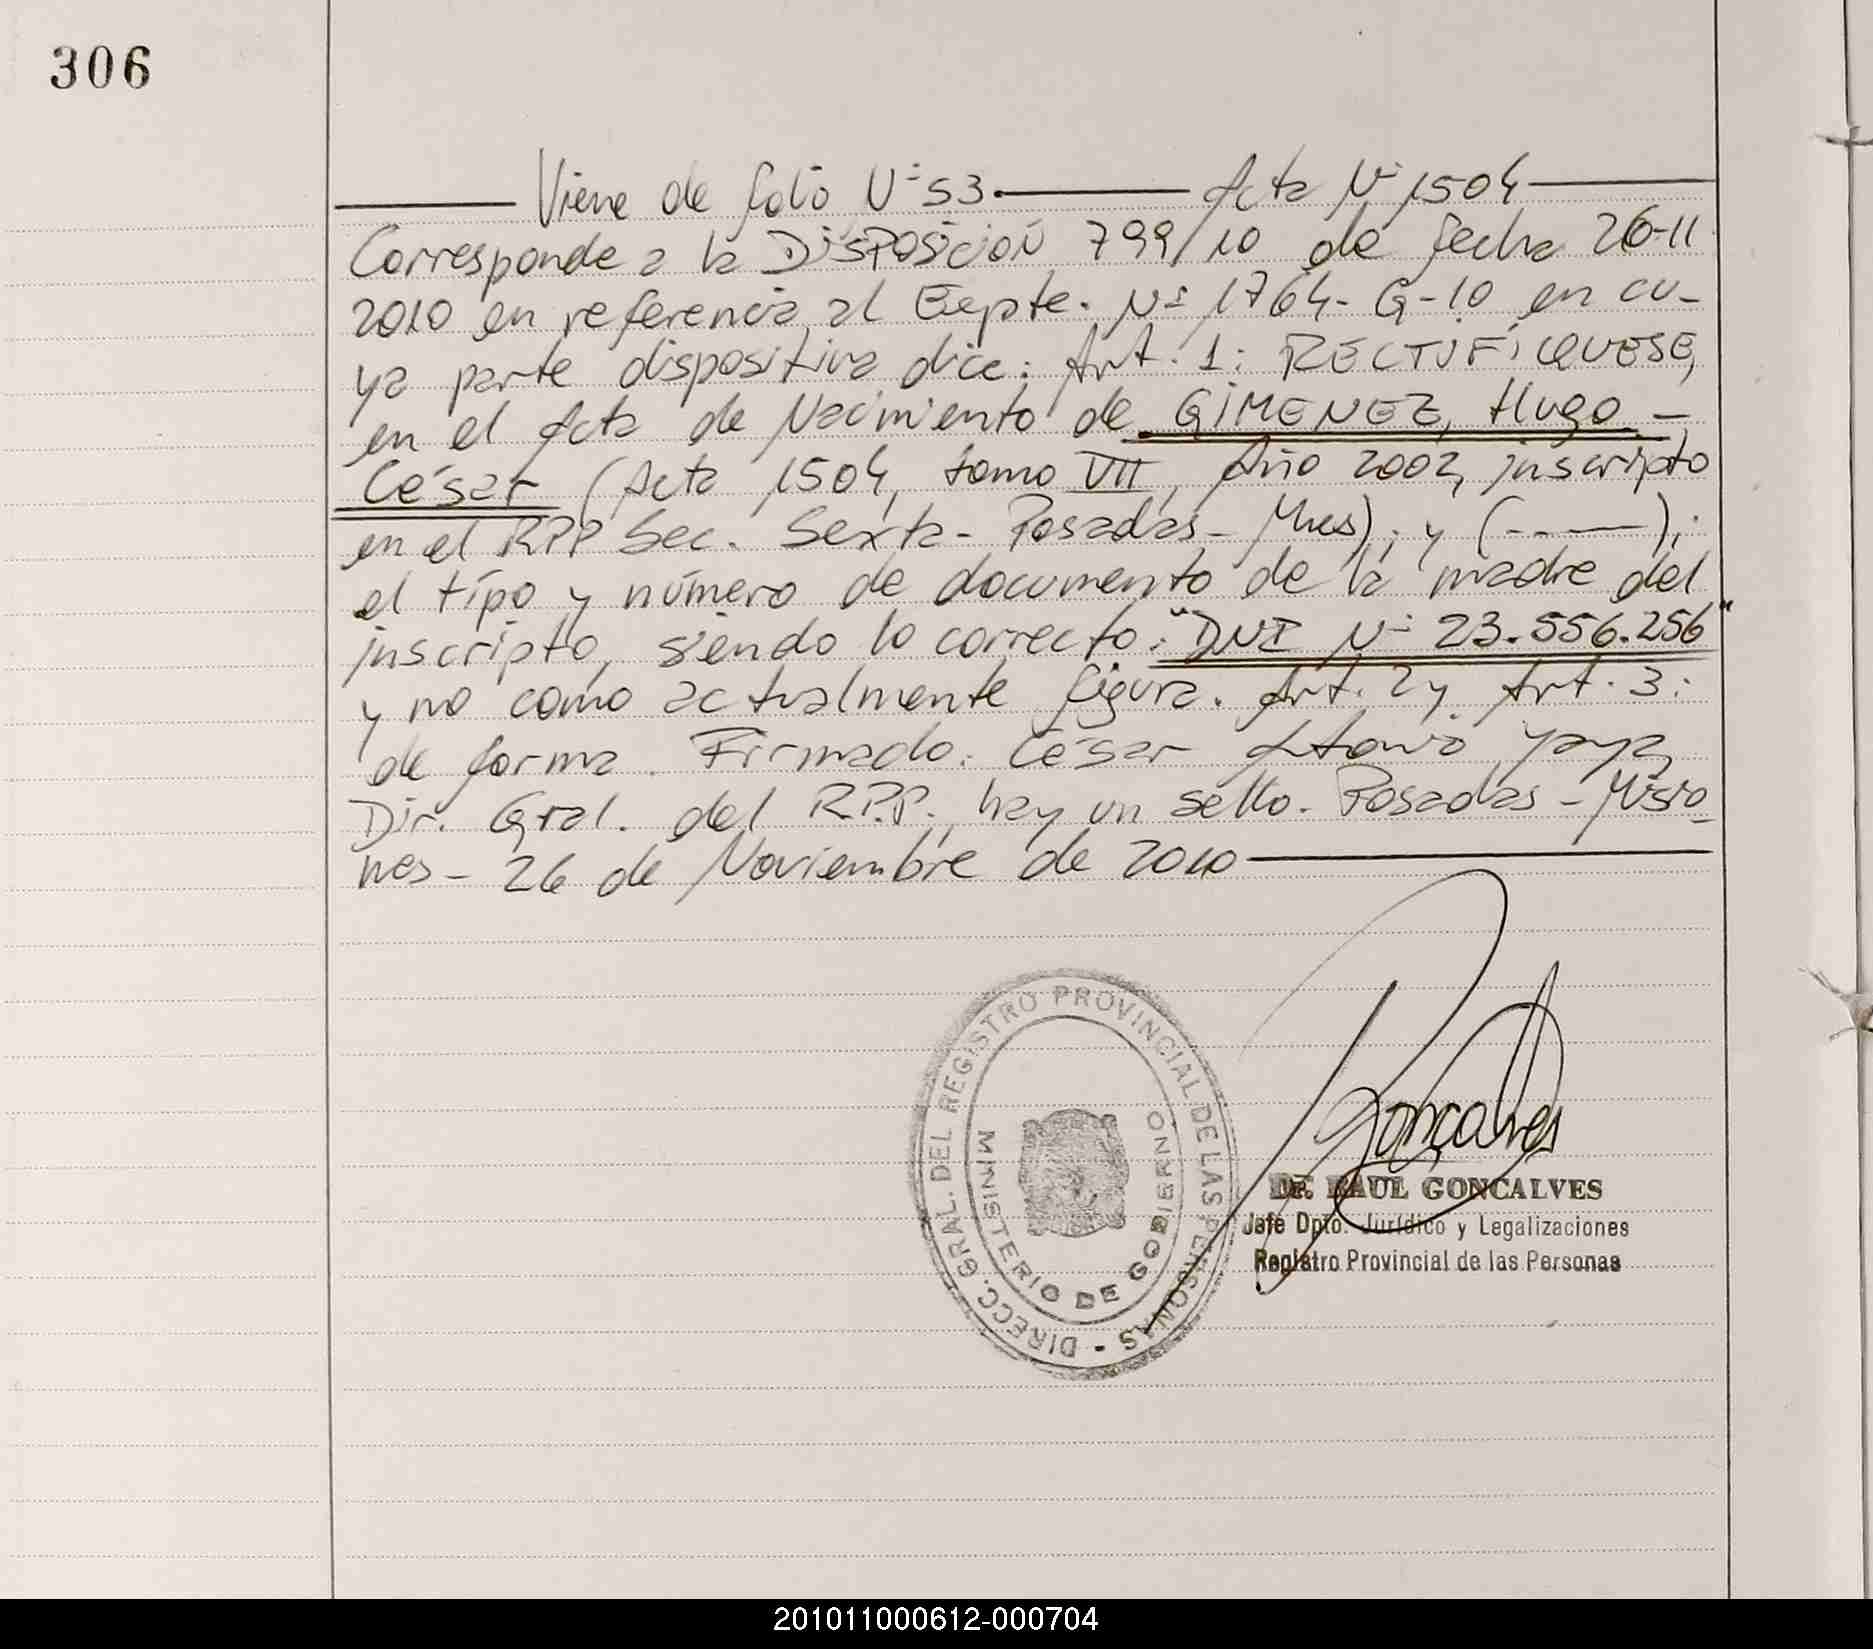 306
Viene de folio Nº 53. Acta Nº 1504
Corresponde a la DISPOSICIÓN 799/10 de fecha 26-11
2010 en referencia al Expte. Nº 1764-G-10, en cu-
ya parte dispositiva dice: Art. 1: RECTIFÍQUESE,
en el Acta de Nacimiento de GIMENEZ, Hugo -
César (Acta 1504, tomo VII, Año 2002, inscripto
en el RPP Sec. Sexta - Posadas - Mnes); y (-----);
el tipo y número de documento de la madre del
inscripto, siendo lo correcto: "DNI Nº 23.556.256"
y no como actualmente figura. Art. 2 y Art. 3:
de forma. Firmado: César Antonio Yaya,
Dir. Gral. del R.P.P., hay un sello. Posadas - Misio-
nes - 26 de Noviembre de 2010
DIRECC. GRAL. DEL REGISTRO PROVINCIAL DE LAS PERSONAS -
MINISTERIO DE GOBIERNO
Gonçalves
Dr. RAUL GONCALVES
Jefe Dpto. Jurídico y Legalizaciones
Registro Provincial de las Personas
201011000612-000704